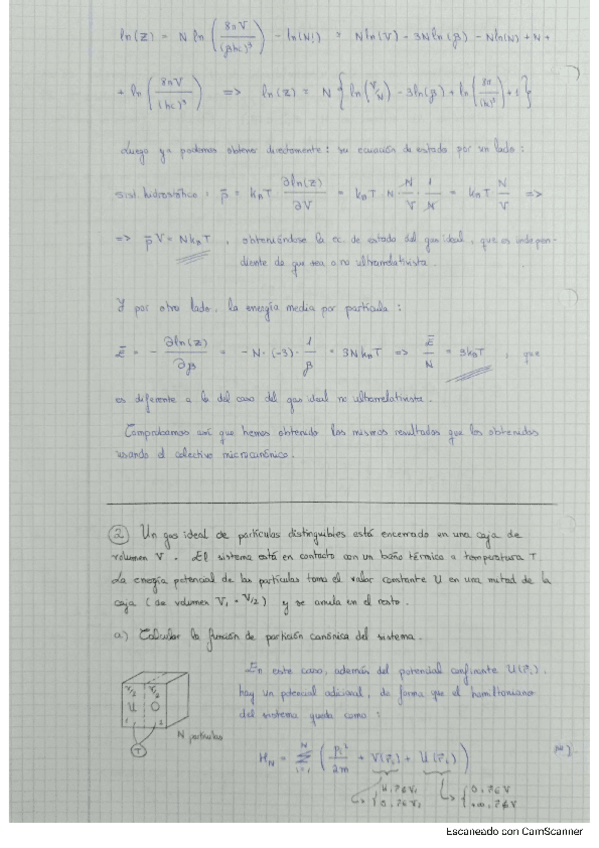 ln(Z) = N ln(8πV/(βhc)³) - ln(N!) = N ln(V) - 3N ln(β) - N ln(N) + N +
+ ln(8π/(hc)³) => ln(Z) = N{ln(V/N) - 3 ln(β) + ln(8π/(hc)³) + 1}
Luego ya podemos obtener directamente: su ecuación de estado por un lado:
sist. hidrostático: p̄ = k_B T ∂ln(Z)/∂V = k_B T N · N/V · 1/N = k_B T N/V =>
=> p̄V = Nk_BT, obteniéndose la ec. de estado del gas ideal, que es indepen-
diente de que sea o no ultrarrelativista.
Y por otro lado, la energía media por partícula:
Ē = - ∂ln(Z)/∂β = -N·(-3)· 1/β = 3Nk_BT => Ē/N = 3k_BT, que
es diferente a la del caso del gas ideal no ultrarrelativista.
Comprobamos así que hemos obtenido los mismos resultados que los obtenidos
usando el colectivo microcanónico.
2 Un gas ideal de partículas distinguibles está encerrado en una caja de
volumen V. El sistema está en contacto con un baño térmico a temperatura T.
La energía potencial de las partículas toma el valor constante U en una mitad de la
caja (de volumen V₁ = V/2) y se anula en el resto.
a) Calcular la función de partición canónica del sistema.
En este caso, además del potencial confinante U(r̄ᵢ),
hay un potencial adicional, de forma que el hamiltoniano
del sistema queda como:
V/2 V/2
U O
1 2
N partículas
T
H_N = Σᵢ₌₁ᴺ (pᵢ²/2m + V(r̄ᵢ) + U(r̄ᵢ))
U, r̄ᵢ∈V₁ 0, r̄ᵢ∈V
0, r̄ᵢ∉V₁ +∞, r̄ᵢ∉V
Escaneado con CamScanner